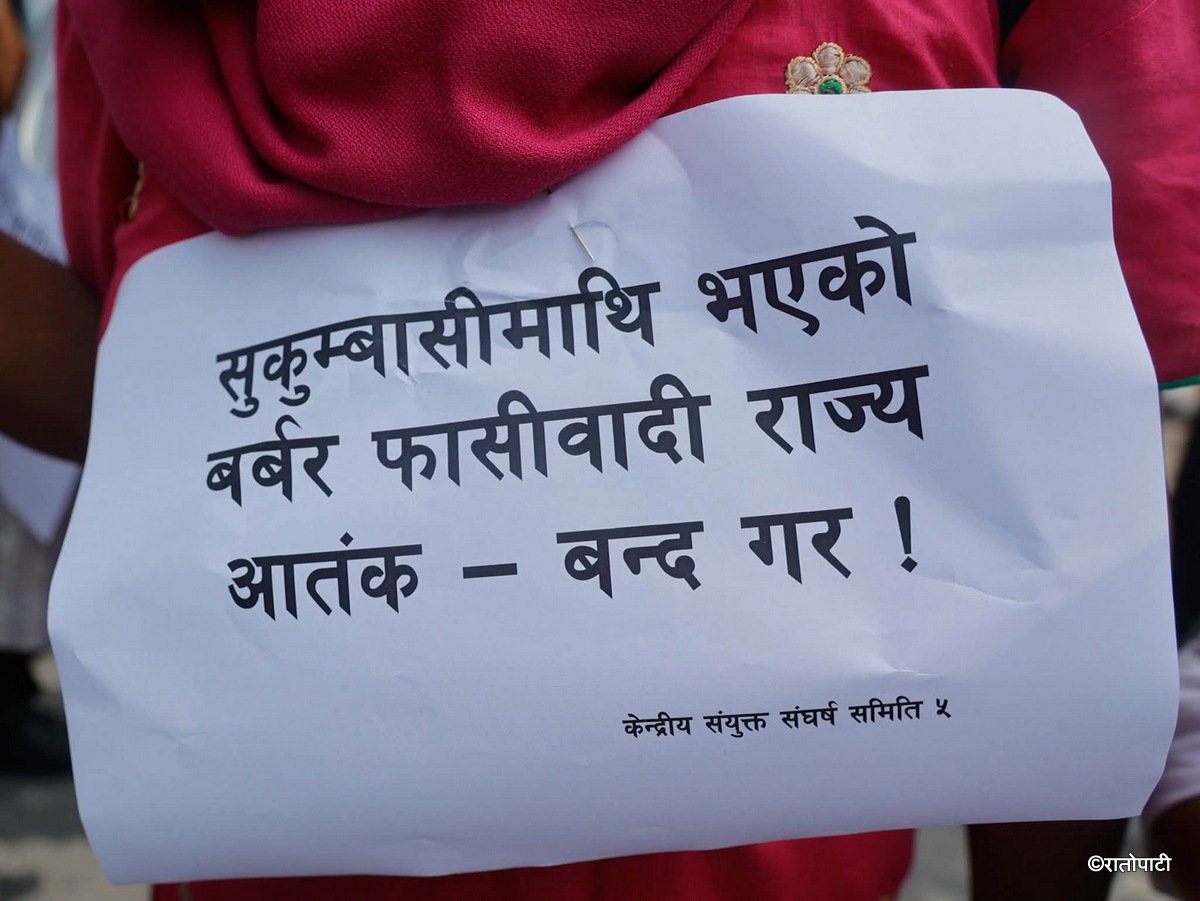 सुकुम्बासीमाथि भएको
बर्बर फासीवादी राज्य
आतंक – बन्द गर !
केन्द्रीय संयुक्त संघर्ष समिति ५
©रातोपाटी